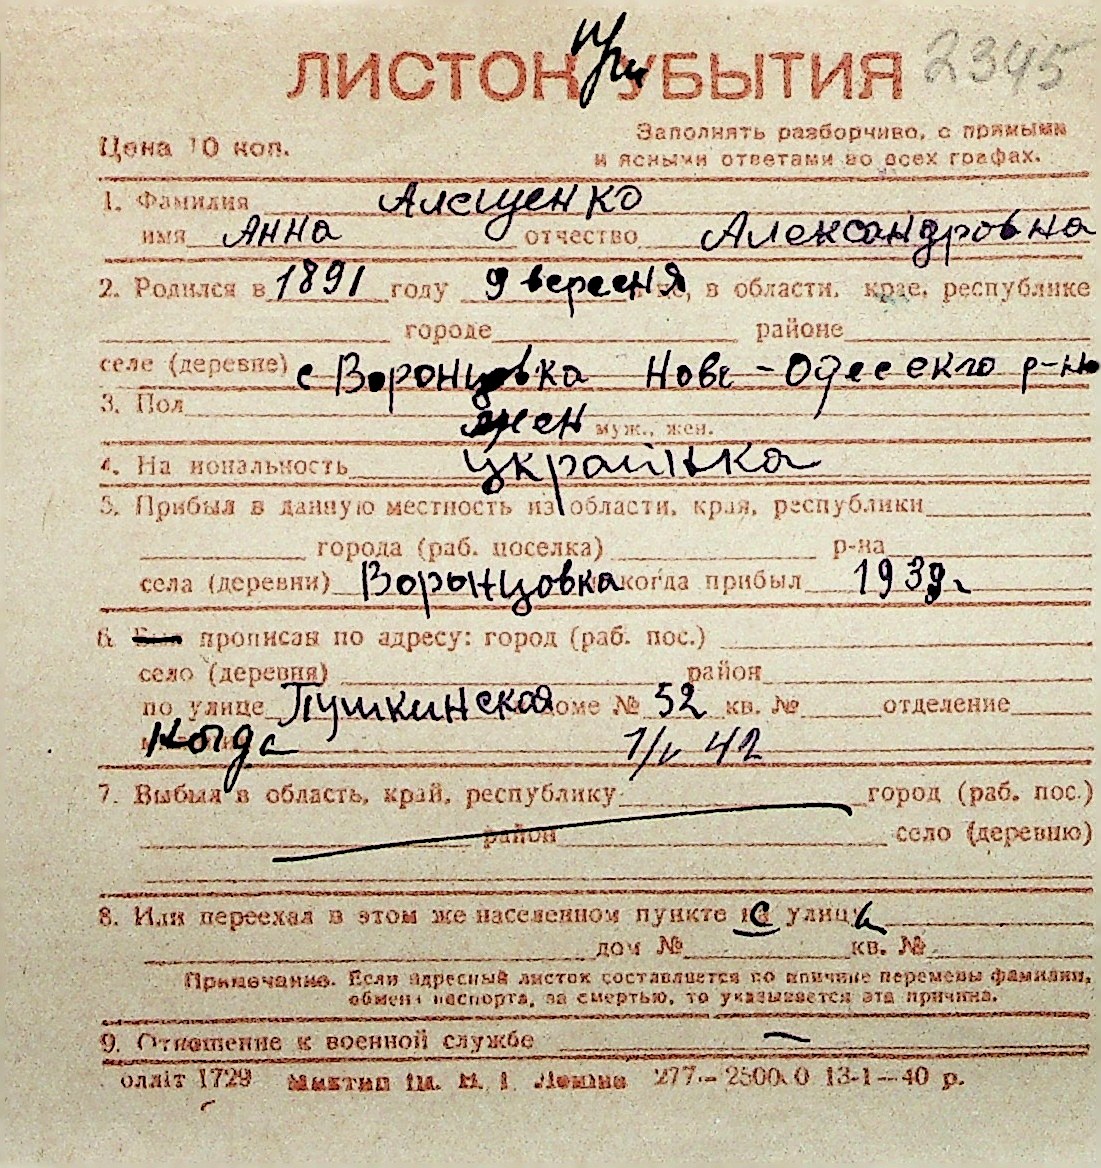 ЛИСТОК при УБЫТИЯ 2345
Цена 10 коп.
Заполнять разборчиво, с прямыми
и ясными ответами во всех графах.
1. Фамилия Алещенко
имя Анна отчество Александровна
2. Родился в 1891 году 9 вересня, в области, крае, республике
городе районе
селе (деревне) с Воронцовка Ново-Одесского р-на
3. Пол жен муж., жен.
4. Национальность украинка
5. Прибыл в данную местность из области, края, республики
города (раб. поселка) р-на
села (деревни) Воронцовка и когда прибыл 1939 г
6. Был прописан по адресу: город (раб. пос.)
село (деревня) район
по улице Пушкинская доме № 52 кв. № отделение
Когда 42
7. Выбыл в область, край, республику город (раб. пос.)
район село (деревню)
8. Или переехал в этом же населенном пункте с улицы
дом № кв. №
Примечание. Если адресный листок составляется по причине перемены фамилии,
обмена паспорта, за смертью, то указывается эта причина.
9. Отношение к военной службе —
олліт 1729 Миктип ім. В. І. Леніна 277— 13-1—40 р.